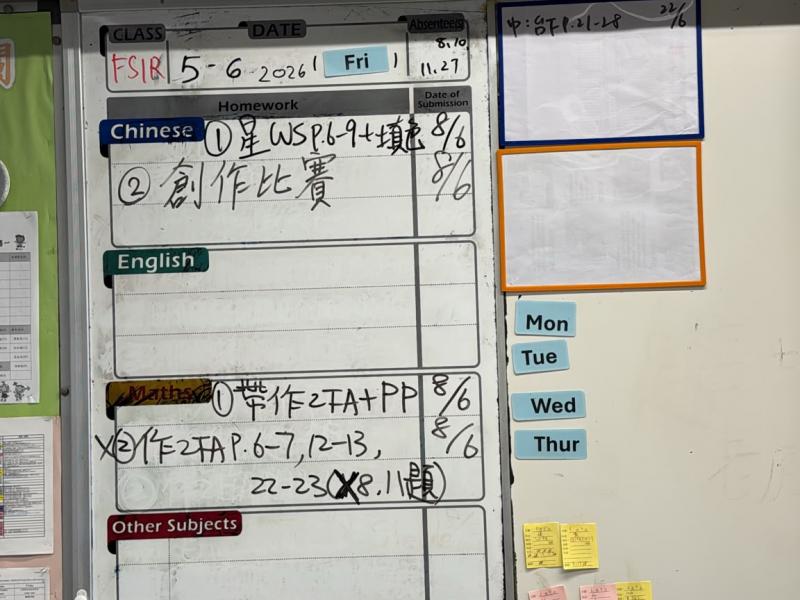 CLASS
DATE
Absentee(s)
FSIR
5-6 2026 ( Fri )
8.10
11.27
Homework
Date of Submission
Chinese
① 星 WS P.6-9+填色 8/6
② 創作比賽 8/6
English
Maths
① 帶作2TA+PP 8/6
X② 作2TA P.6-7, 12-13, 8/6
22-23 (X8.11題)
Other Subjects
P.21-28
22/6
Mon
Tue
Wed
Thur